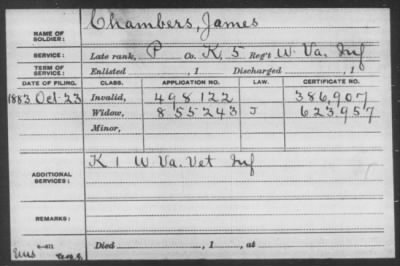 NAME OF SOLDIER: Chambers, James
SERVICE: Late rank, P Co. K, 5 Reg't W. Va. Inf
TERM OF SERVICE: Enlisted , 1 Discharged , 1
DATE OF FILING. CLASS. APPLICATION NO. LAW. CERTIFICATE NO.
1883 Oct-23 Invalid, 498122 386,907
Widow, 855243 J 623957
Minor,
ADDITIONAL SERVICES: K 1 W Va. Vet Inf
REMARKS:
6-071
Died , 1 , at